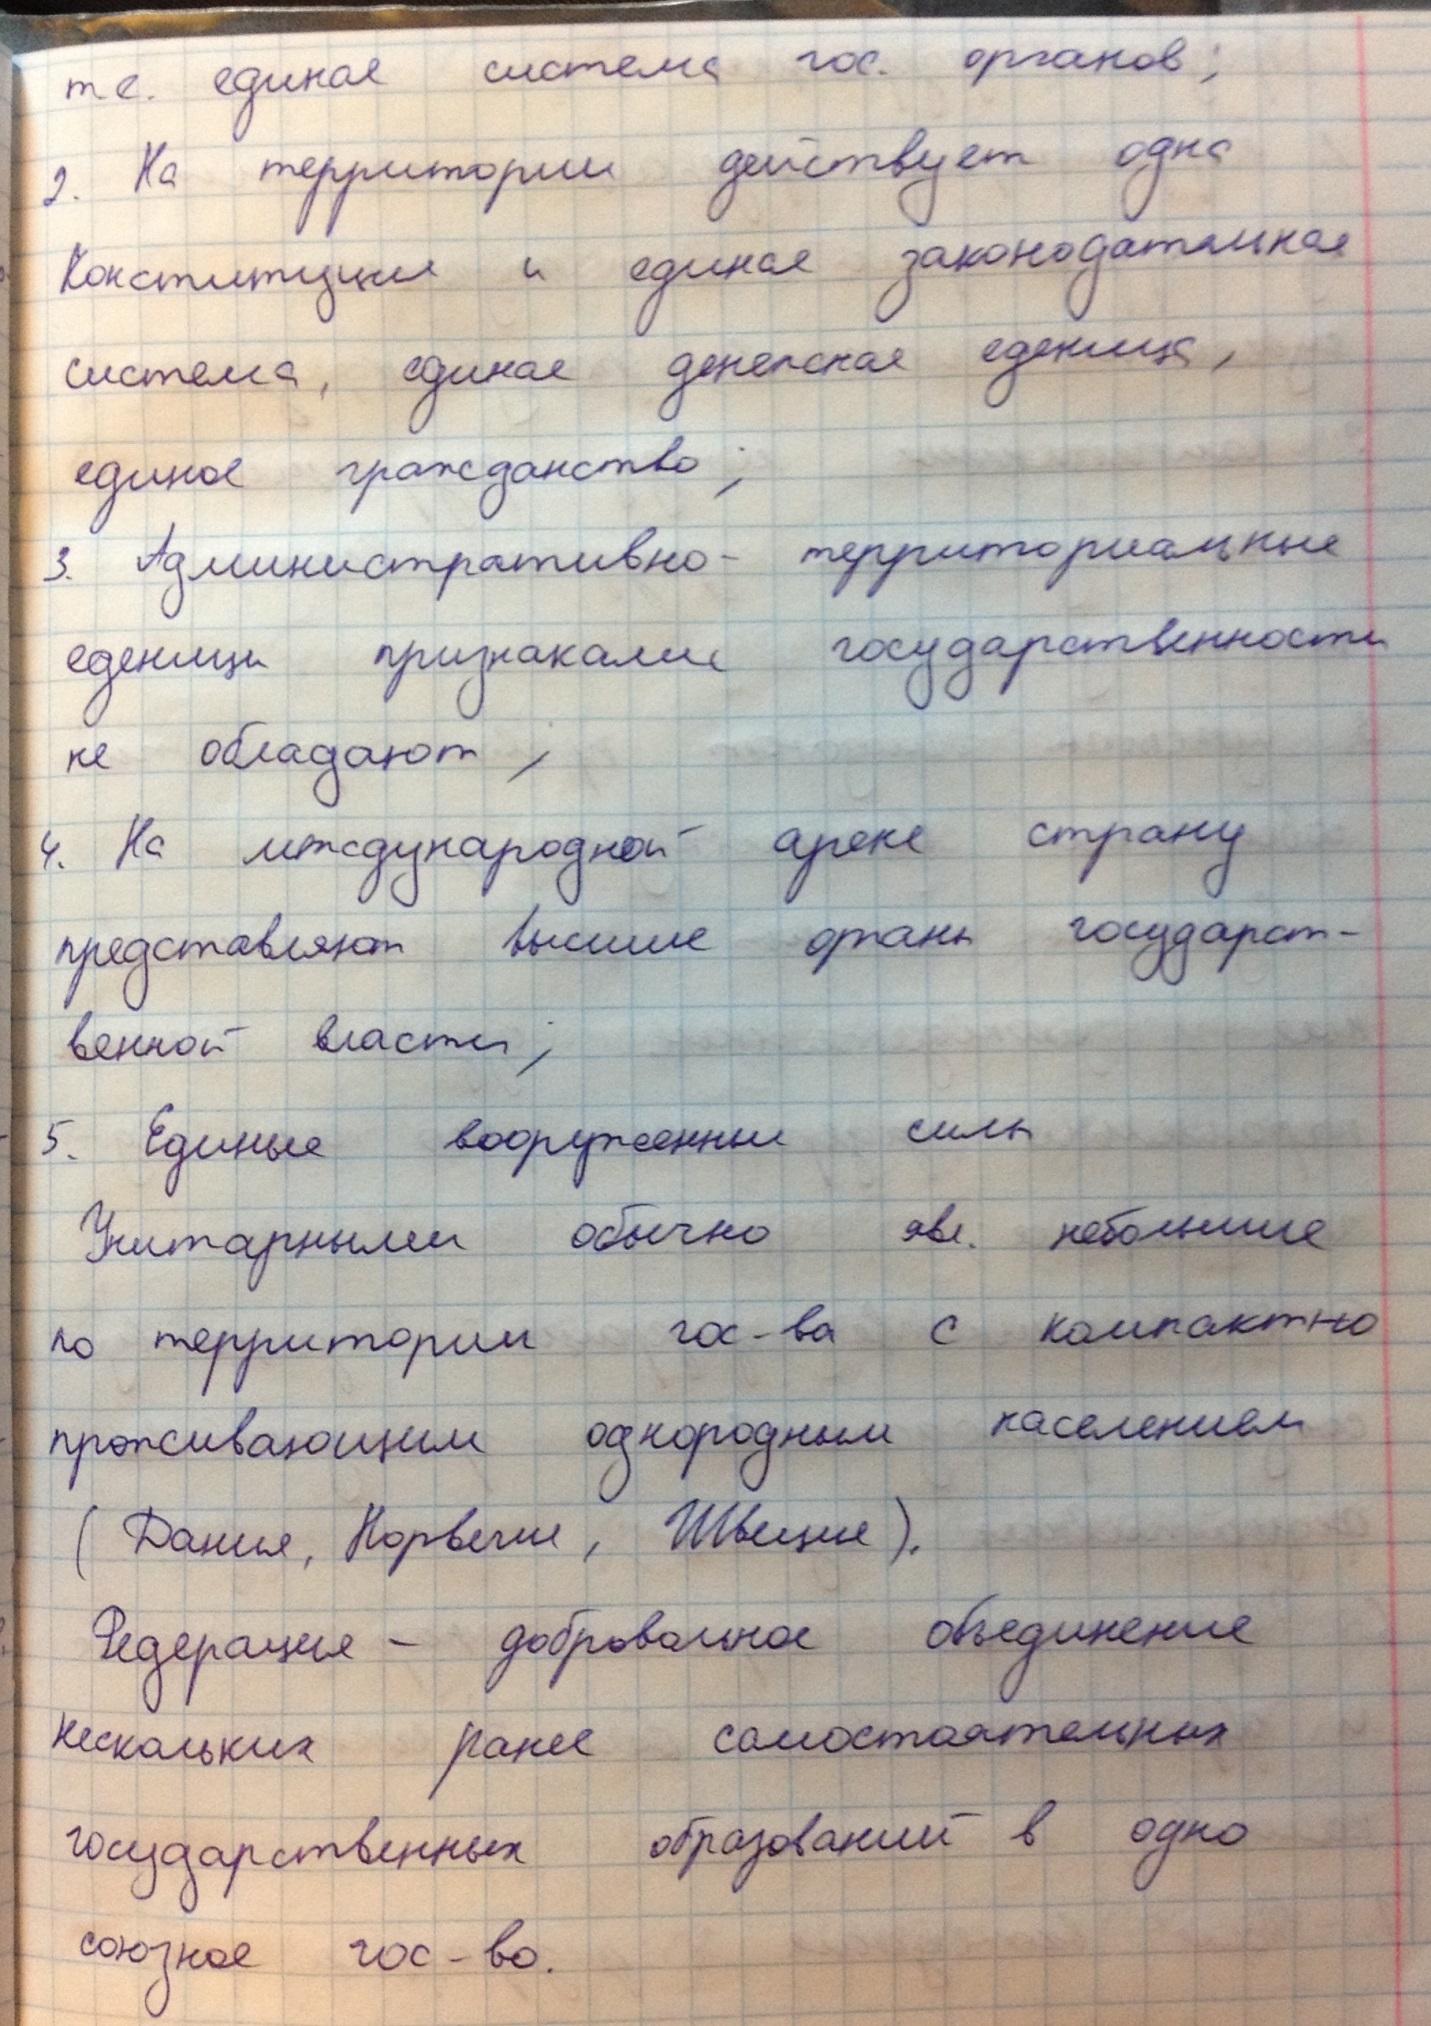 т е. единая система гос. органов;
2. На территории действует одна
Конституция и единая законодательная
система, единая денежная еденица,
единое гражданство;
3. Административно- территориальные
еденицы признаками государственности
не обладают;
4. На международной арене страну
представляют высшие органы государст-
венной власти;
5. Единые вооруженные силы
Унитарными обычно явл. небольшие
по территории гос-ва с компактно
проживающим однородным населением
(Дания, Норвегия, Швеция).
Федерация - добровольное объединение
нескольких ранее самостоятельных
государственных образований в одно
союзное гос-во.